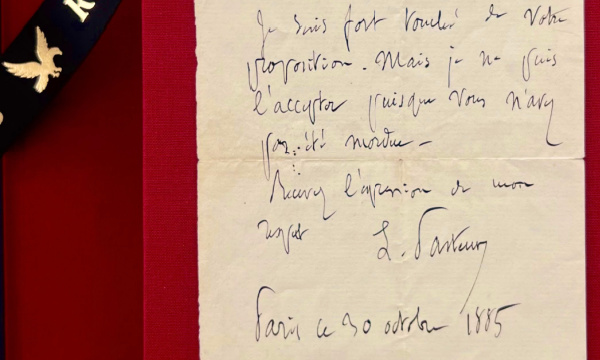 K
Je suis fort touché de votre
proposition. Mais je ne puis
l'accepter puisque vous n'avez
pas été mordue –
Recevez l'expression de mon
respect
L. Pasteur
Paris ce 30 octobre 1885